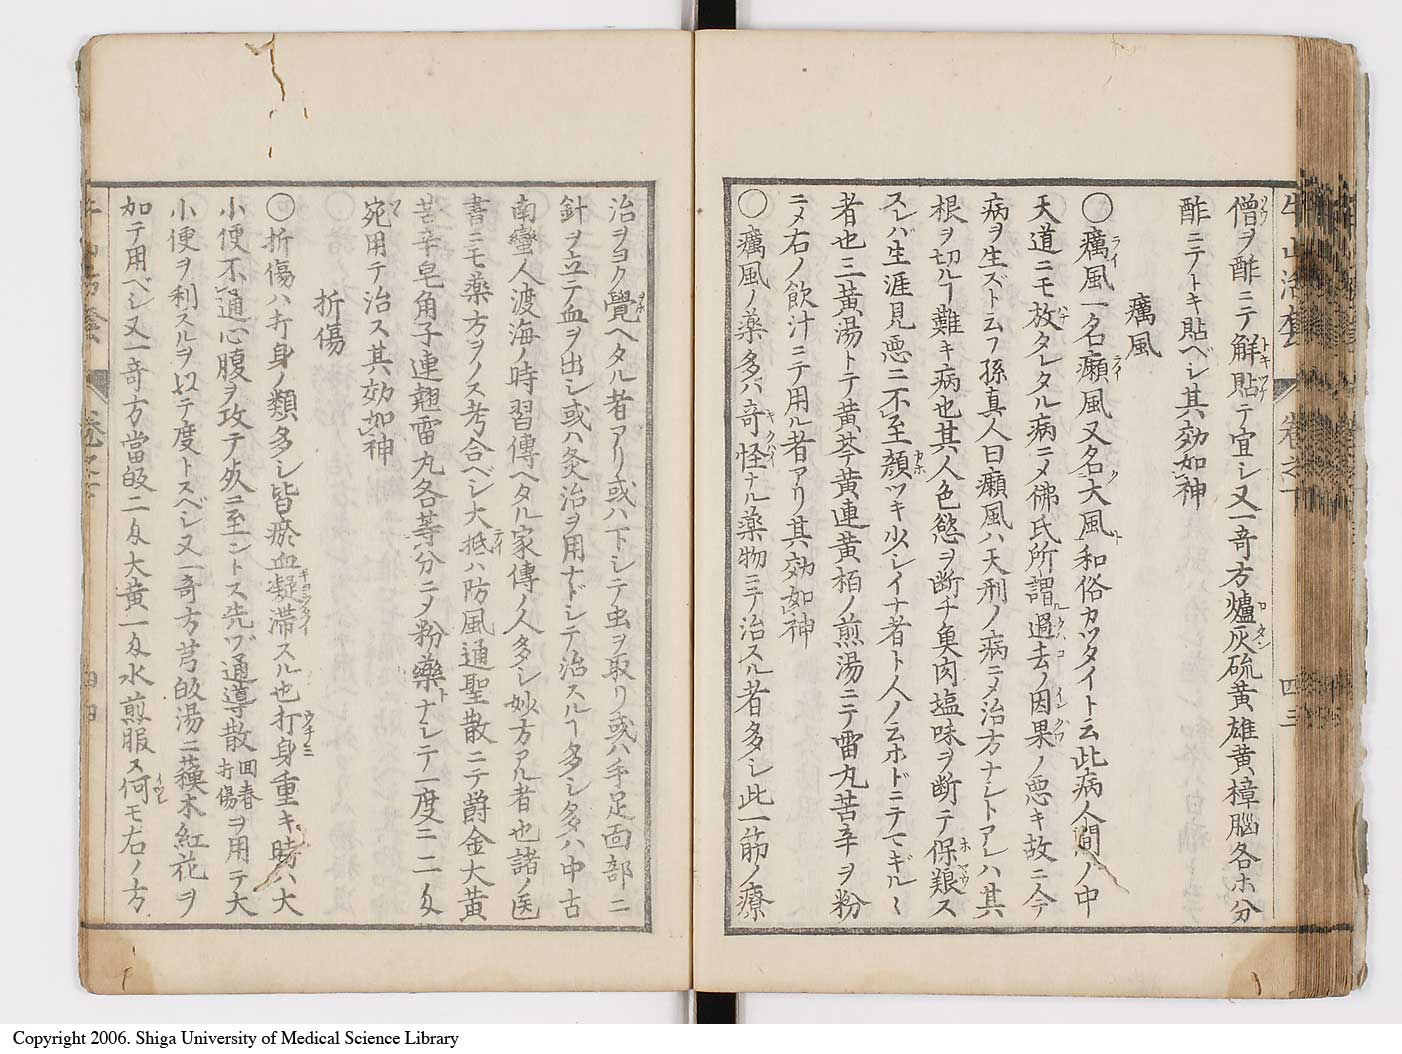 牛山活套 卷之下 四三
僧ヲ酢ニテ解貼テ宜シ又一奇方爐灰硫黄雄黄樟脳各ホ分
酢ニテトキ貼ベシ其効如神
癘風
〇癘風一名癩風又名大風和俗カツタイト云此病人間ノ中
天道ニモ放タレタル病ニメ佛氏所謂過去ノ因果ノ悪キ故ニ今
病ヲ生ズト云フ孫真人曰癩風ハ天刑ノ病ニメ治方ナシトアレハ其
根ヲ切ルヿ難キ病也其人色慾ヲ断チ魚肉塩味ヲ断テ保軄ス
スレバ生涯見悪ニ不至顔ツキ少レイナ者ト人ノ云ホドニテマギルヽ
者也三黄湯トテ黄芩黄連黄栢ノ煎湯ニテ雷丸苦辛ヲ粉
ニメ右ノ飲汁ニテ用ル者アリ其効如神
〇癘風ノ薬多バ奇怪ナル薬物ニテ治スル者多シ此一節ノ療
治ヲヨク覺ヘタル者アリ或ハ下シテ虫ヲ取リ或ハ手足面部ニ
針ヲ立テ血ヲ出シ或ハ灸治ヲ用ナドシテ治スルヿ多シ多ハ中古
南蠻人渡海ノ時習傳ヘタル家傳ノ人多シ妙方アル者也諸ノ医
書ニモ薬方ヲノス考合ベシ大抵ハ防風通聖散ニテ爵金大黄
苦辛皂角子連翹雷丸各等分ニメ粉藥トナシテ一度ニ二匁
宛用テ治ス其効如神
折傷
〇折傷ハ打身ノ類多シ皆瘀血凝滞スル也打身重キ時ハ大
小便不通心腹ヲ攻テ死ニ至ントス先ヅ通導散 回春打傷 ヲ用テ大
小便ヲ利スルヲ以テ度トスベシ又一奇方芎皈湯ニ蘓木紅花ヲ
加テ用ベシ又一奇方當皈二匁大黄一匁水煎服ス何モ右ノ方
Copyright 2006. Shiga University of Medical Science Library